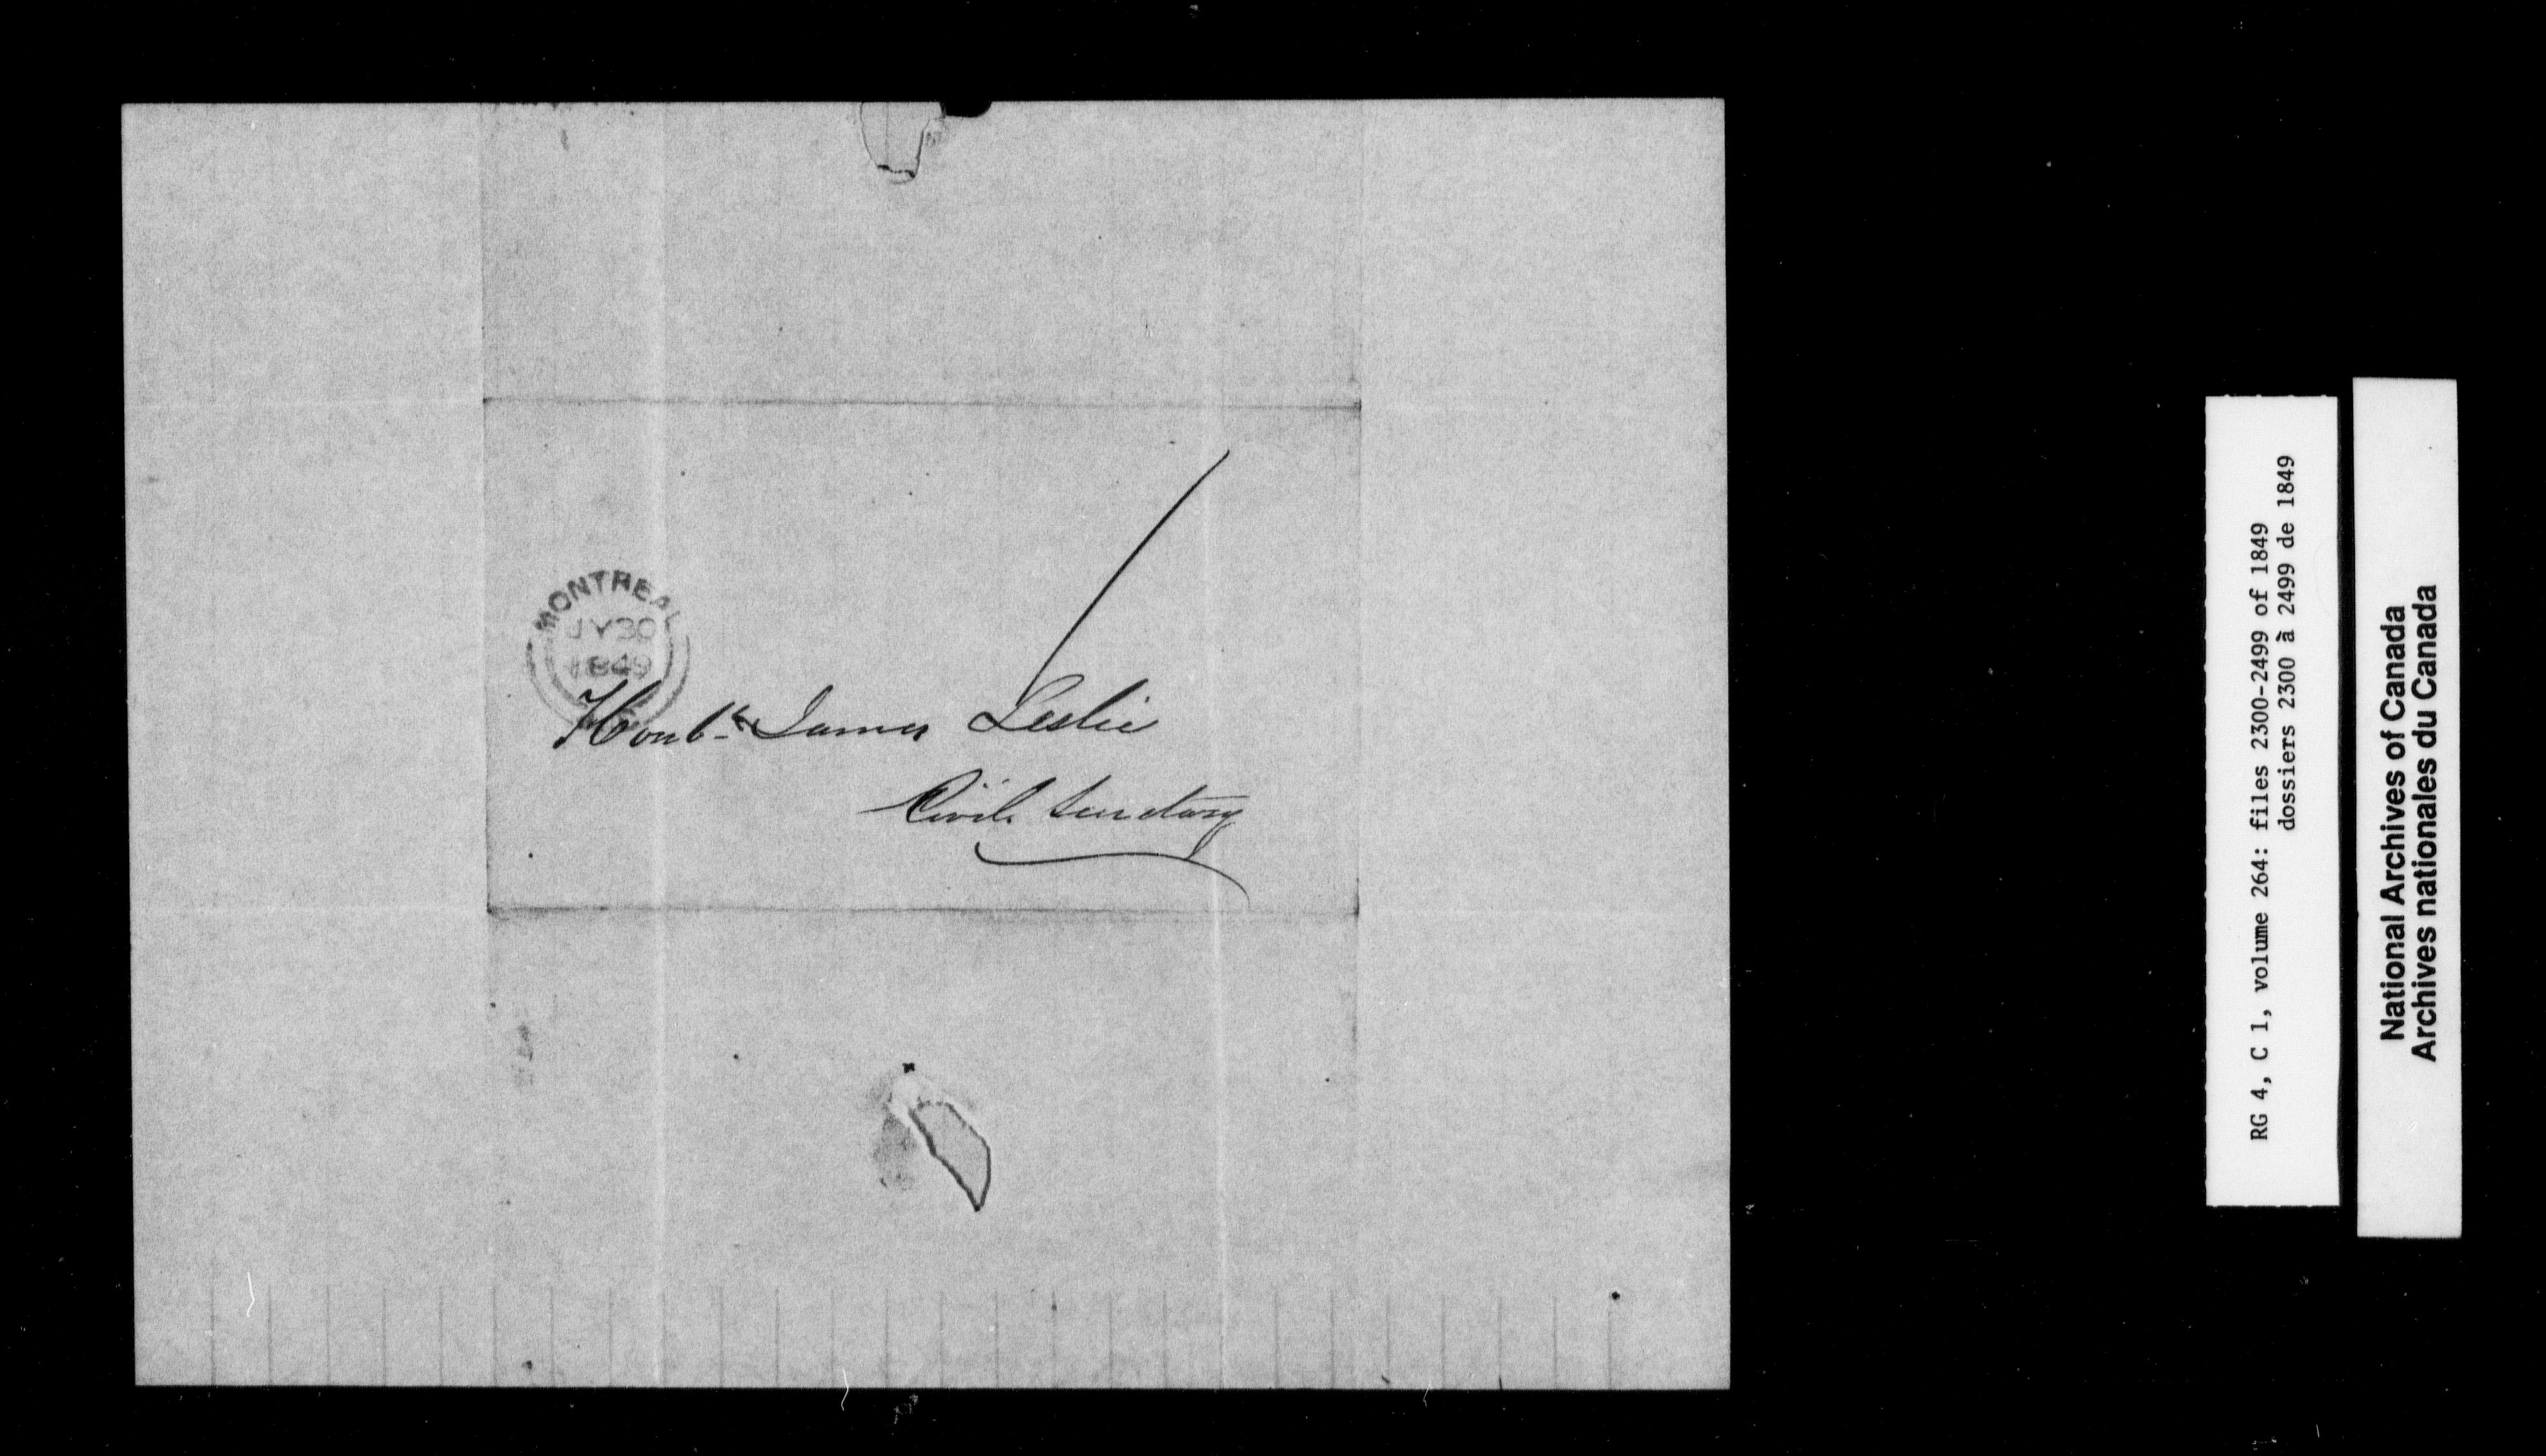 MONTREAL
JY 30
1849
Honble James Leslie
Civil Secretary
RG 4, C 1, volume 264: files 2300-2499 of 1849
dossiers 2300 à 2499 de 1849
National Archives of Canada
Archives nationales du Canada